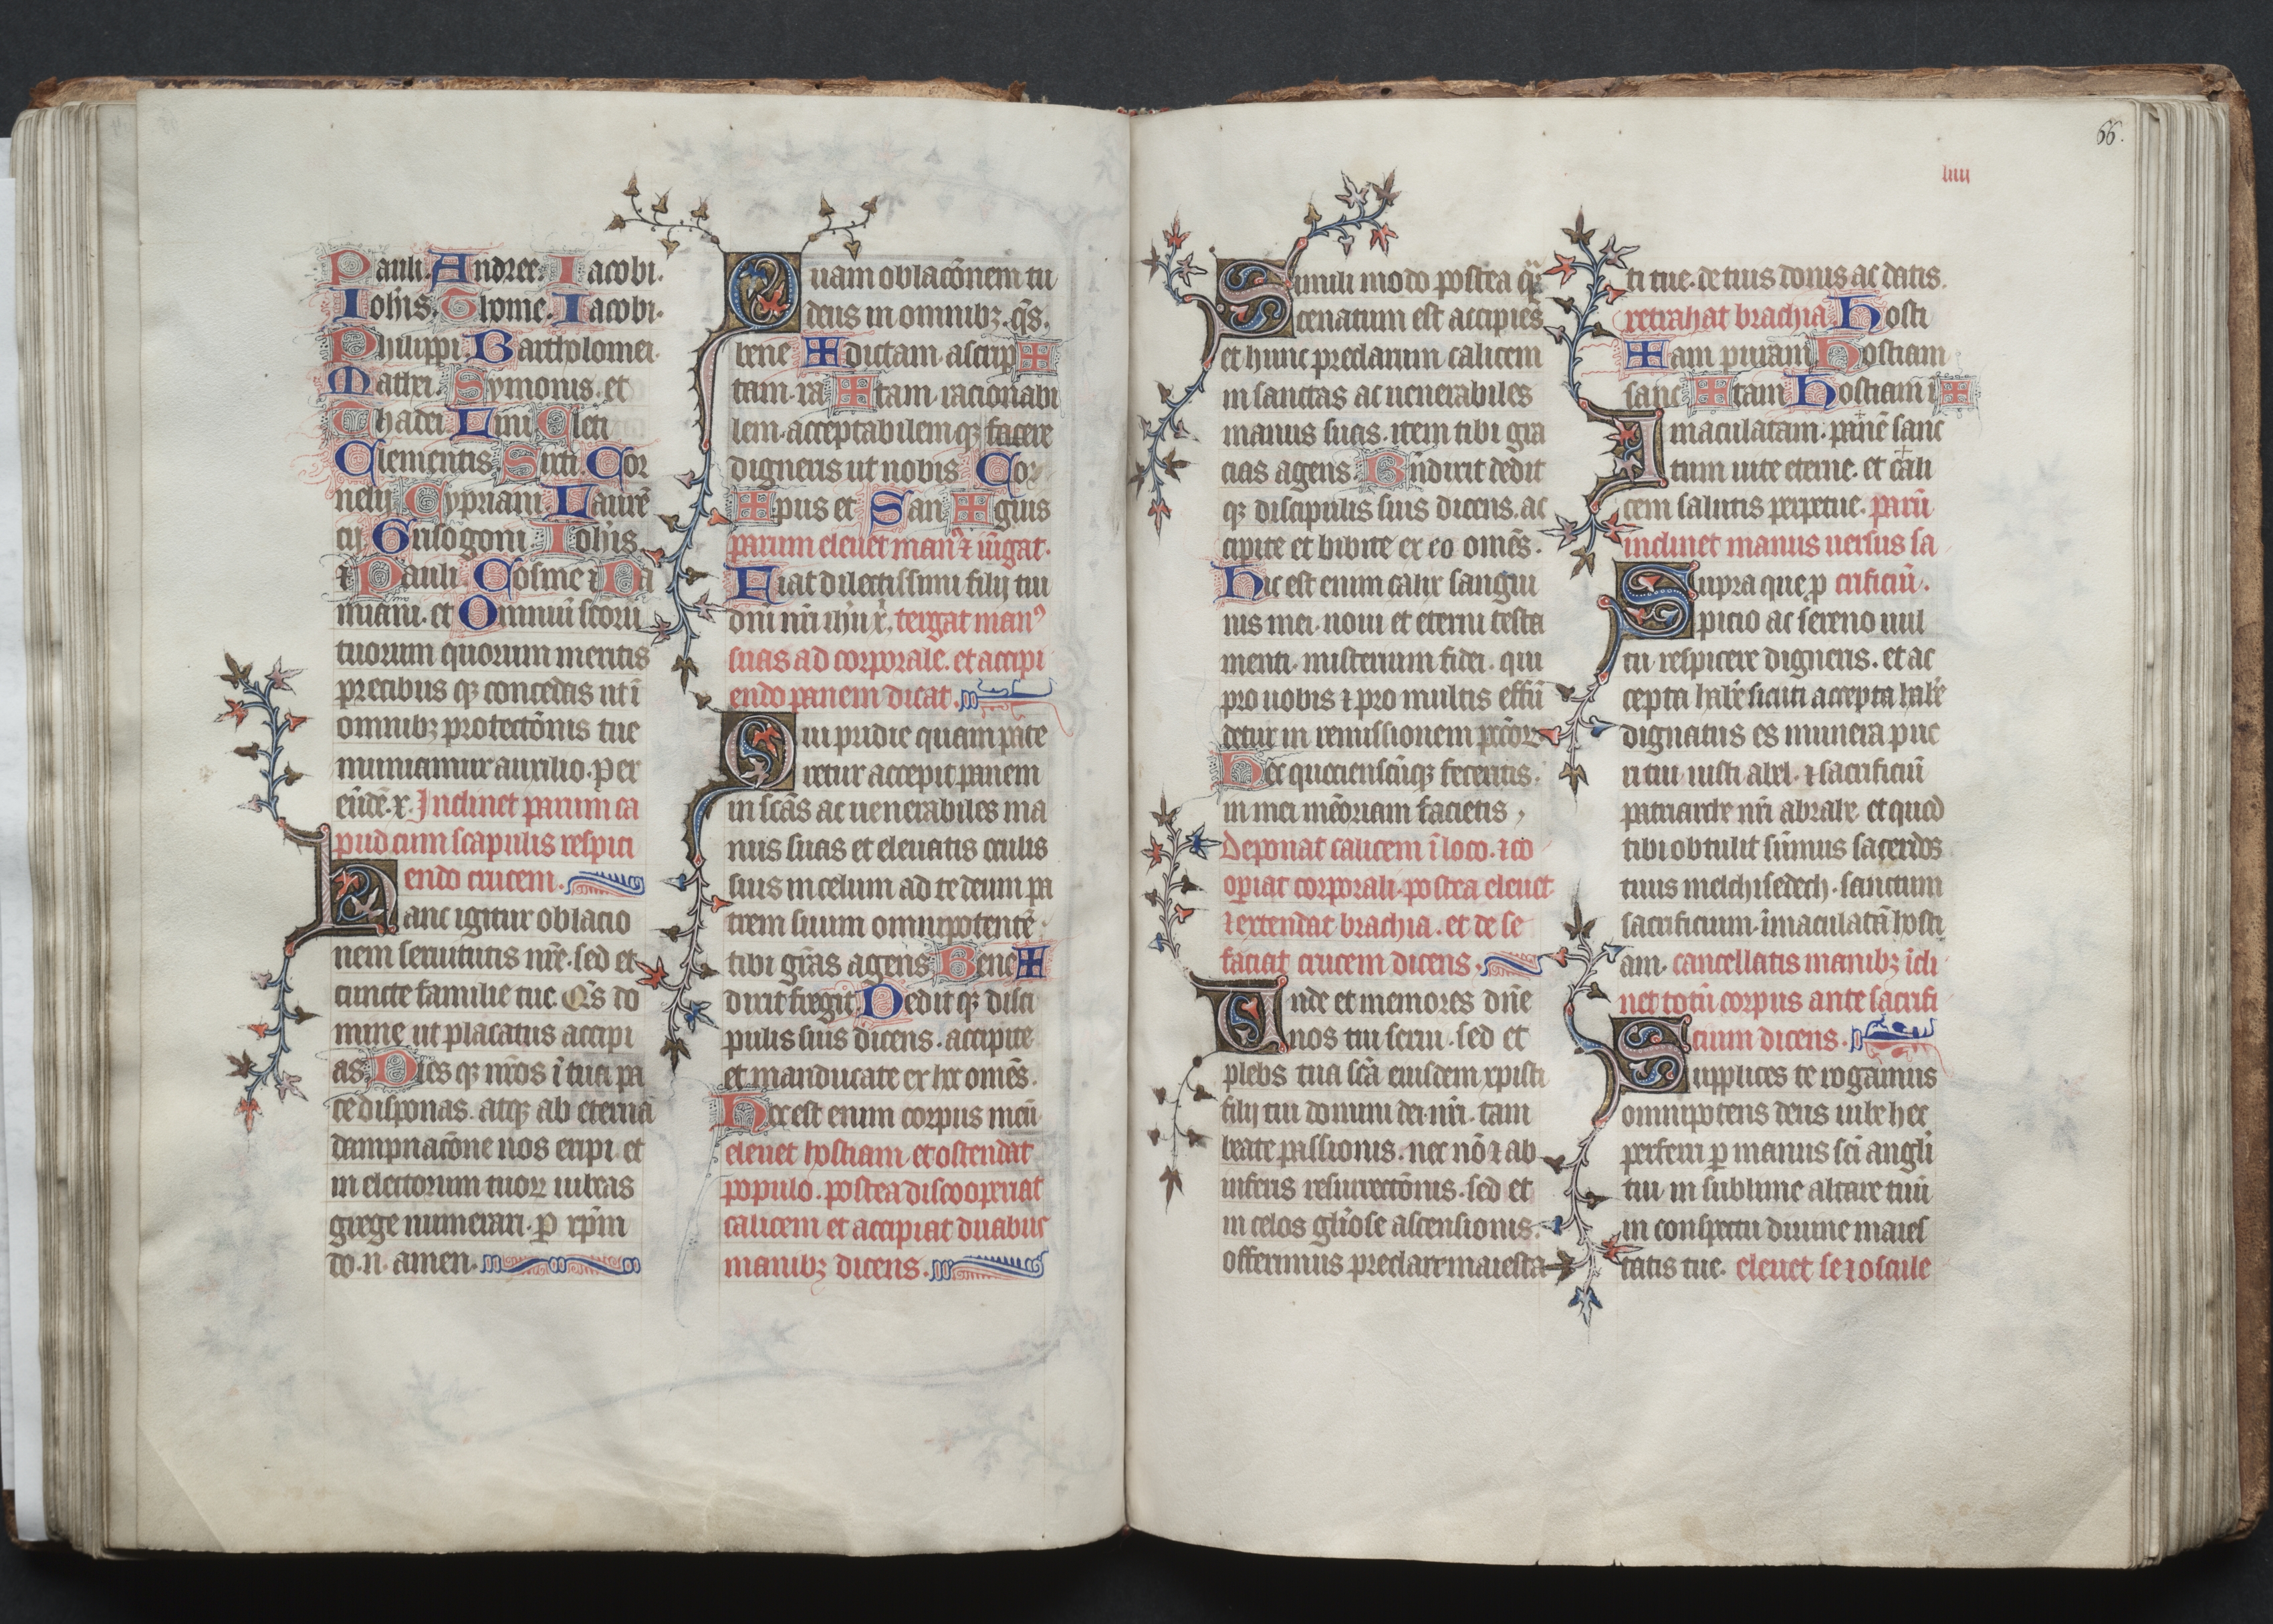 Pauli. Andree. Iacobi.
Ioh̄is. Thome. Iacobi.
Philippi. Bartholomei.
Mathei. Symonis. et
Thadei. Lini Cleti
Clementis. Sixti. Cor
nelij Cypriani Laurē
cij Grisogoni. Ioh̄is
⁊ Pauli. Cosme ⁊ Da
miani. et Omniū scoru
tuorum quorum meritis
precibus qꝫ concedas ut ī
omnibꝫ protectōnis tue
muniamur auxilio. per
eūdē. x̄. Inclinet parum ca
pud cum scapulis respici
endo crucem.
Hanc igitur oblacio
nem seruitutis nr̄e. sed et
cuncte familie tue. Qs̄ do
mine ut placatus accipi
as. Dies qꝫ nr̄os ī tua pa
ce disponas. atqꝫ ab eterna
dampnacōne nos eripi. et
in electorum tuoꝝ iubeas
grege numerari. ꝑ xp̄m
do. n. amen.
Quam oblacōnem tu
deus in omnibꝫ. qs̄.
bene ✠ dictam. ascrip ✠
tam. ra ✠ tam. racionabi
lem. acceptabilemqꝫ facere
digneris ut nobis Cor
✠ pus et San ✠ guis
parum eleuet man⁹ ⁊ iūgat.
Fiat dilectissimi filij tui
dn̄i nr̄i ih̄u x̄. tergat man⁹
suas ad corporale. et accipi
endo panem dicat.
Qui pridie quam pate
retur accepit panem
in scās ac uenerabiles ma
nus suas et eleuatis oculis
suis in celum ad te deum pa
trem suum omnipotentē.
tibi gr̄as agens Bene ✠
dixit fregit Dedit qꝫ disci
pulis suis dicens. accipite
et manducate ex hoc omēs.
Hoc est enim corpus meū
eleuet hostiam et ostendat
populo. postea discooperiat
calicem et accipiat duabus
manibꝫ dicens.
66.
liiii
Simili modo postea q̄
cenatum est accipiēs
et hunc preclarum calicem
in sanctas ac uenerabiles
manus suas. item tibi gra
cias agens. Bn̄dixit dedit
qꝫ discipulis suis dicens. ac
cipite et bibite ex eo omēs.
Hic est enim calix sangui
nis mei. noui et eterni testa
menti. misterium fidei. qui
pro uobis ⁊ pro multis effū
detur in remissionem pccōꝝ
Hec quociensc̄ūqꝫ feceritis.
in mei mēoriam facietis,
Deponat calicem ī loco. ⁊ co
opiat corporali. postea eleuet
⁊ extendat brachia. et de se
faciat crucem dicens.
Unde et memores dn̄e
nos tui serui. sed et
plebs tua scā eiusdem xpisti
filij tui domini dei. nr̄i. tam
beate passionis. nec nō ⁊ ab
inferis resurrectōnis. sed et
in celos gl̄iose ascensionis.
offerimus preclare maiesta
ti tue. de tuis donis ac datis.
retrahat brachia. Hosti
✠ am puram Hostiam
sanc ✠ tam Hostiam ī ✠
Imaculatam. panē sanc
tum uite eterne. et cali
cem salutis perpetue. parū
inclinet manus uersus sa
Supra que ꝓ crificiū.
picio ac sereno uul
tu respicere digneris. et ac
cepta hab̄e sicuti accepta hab̄e
dignatus es munera pue
ri tui iusti abel. ⁊ sacrificiū
patriarche nr̄i abrahe. et quod
tibi obtulit sūmus sacerdos
tuus melchisedech. sanctum
sacrificium. īmaculatā hosti
am. cancellatis manibꝫ īcli
net totū corpus ante sacrifi
cium dicens.
Supplices te rogamus
omnipotens deus iube hec
perferri ꝑ manus scī angl̄i
tui in sublime altare tuū
in conspectu diuine maies
tatis tue. eleuet se ⁊ oscule